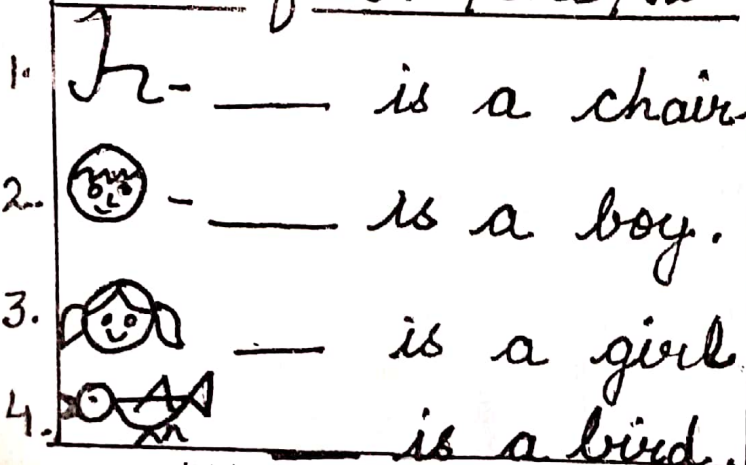 1. - ___ is a chair.
2. - ___ is a boy.
3. ___ is a girl
4. ___ is a bird.